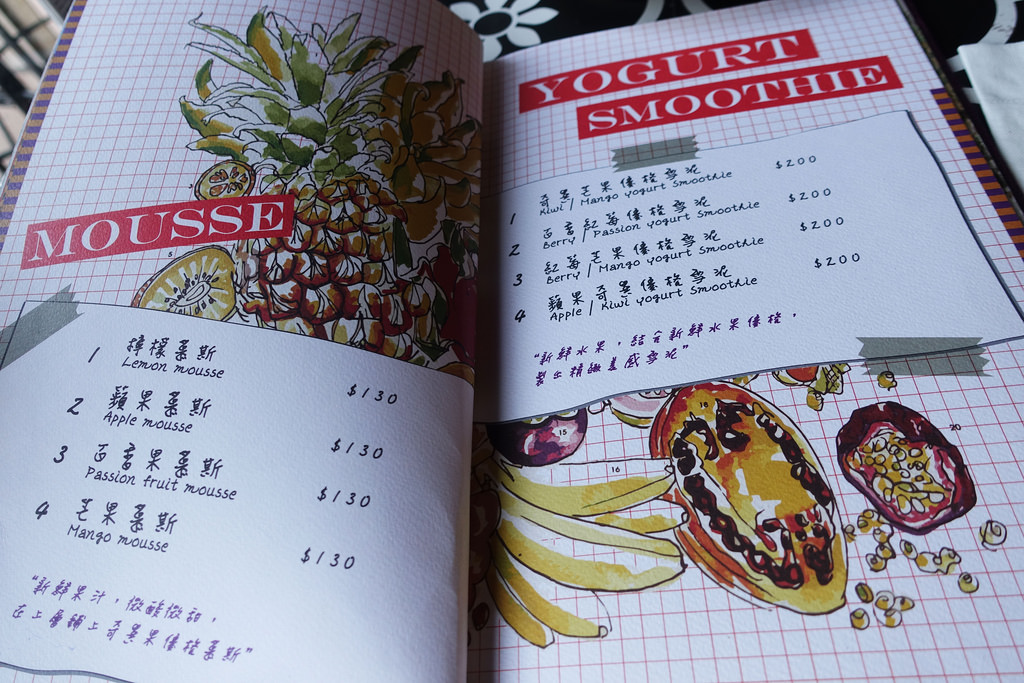 MOUSSE
1 檸檬慕斯 $130
Lemon mousse
2 蘋果慕斯 $130
Apple mousse
3 百香果慕斯 $130
Passion fruit mousse
4 芒果慕斯 $130
Mango mousse
“新鮮果汁，微酸微甜，
在上層鋪上奇異果優格慕斯”
YOGURT
SMOOTHIE
1 奇異芒果優格雪泥 $200
Kiwi / Mango yogurt smoothie
2 百香紅莓優格雪泥 $200
Berry / Passion yogurt smoothie
3 紅莓芒果優格雪泥 $200
Berry / Mango yogurt smoothie
4 蘋果奇異優格雪泥 $200
Apple / Kiwi yogurt smoothie
“新鮮水果，結合新鮮水果優格，
製出精緻美感雪泥”
5
15
16
18
20